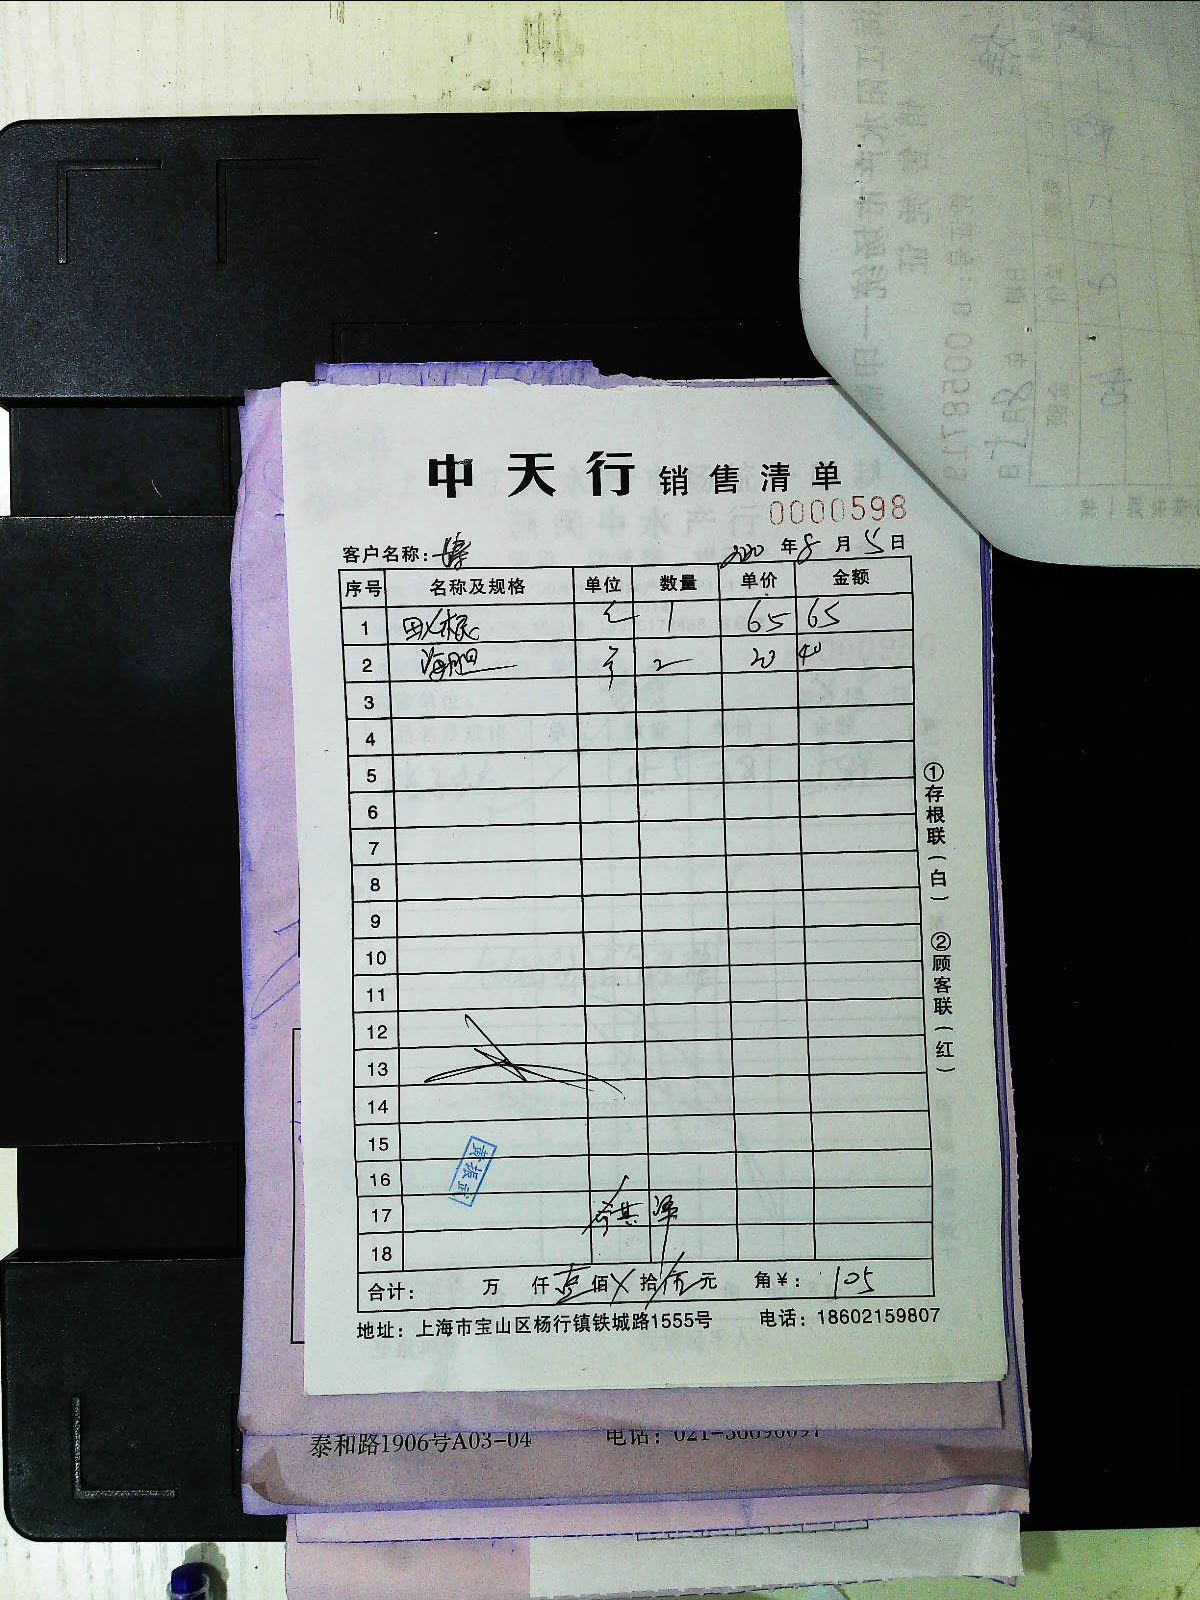 中天行 销售清单
0000598
客户名称： 2020 年 8 月 5 日
序号 名称及规格 单位 数量 单价 金额
1 1 65 65
2 海胆 2 20 40
3
4
5
6
7
8
9
10
11
12
13
14
15
16
17
18
合计： 万 仟 壹 佰 X 拾 伍 元 角 ¥： 105
地址：上海市宝山区杨行镇铁城路1555号 电话：18602159807
①存根联（白） ②顾客联（红）
黄振武
泰和路1906号A03-04 电话：